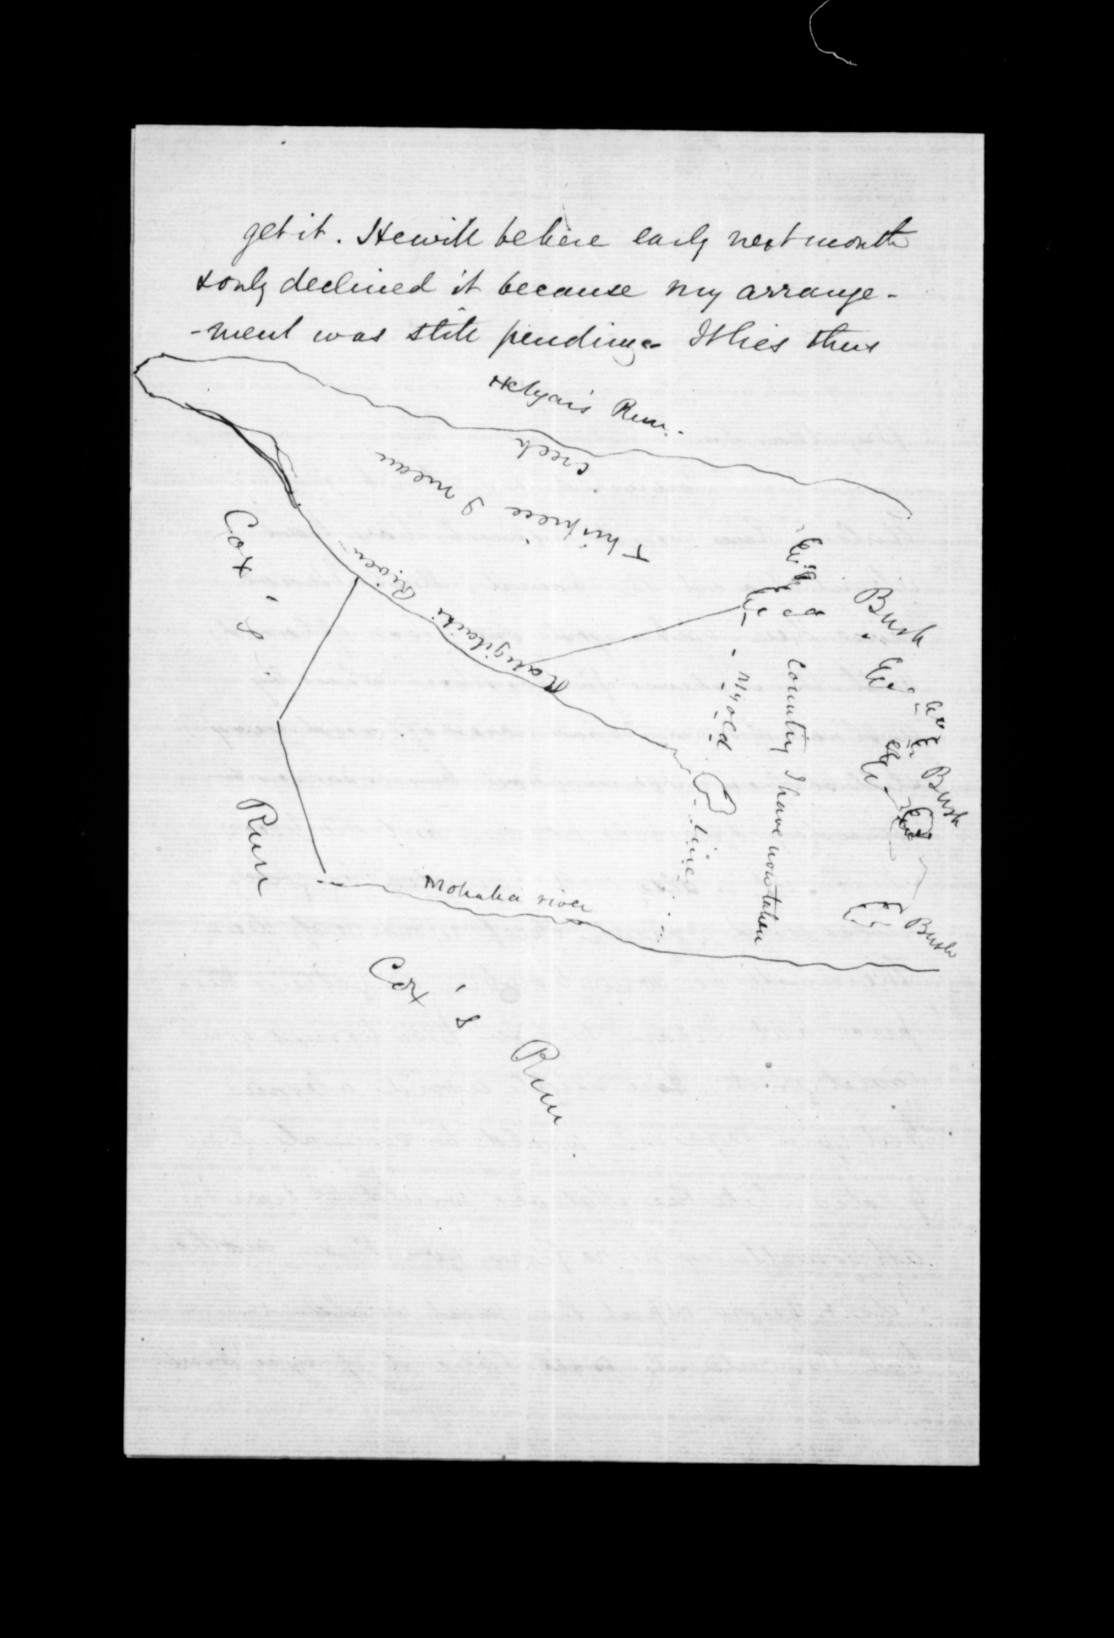 get it. He will be here early next month
& only declined it because my arrange-
-ment was still pending. It lies thus
Helyar's Run.
Creek
This piece I mean
Cox's
Run
Rangitaiki River
My old
line
Country I have now taken
Bush
Bush
Bush
Mohaka river
Cox's
Run